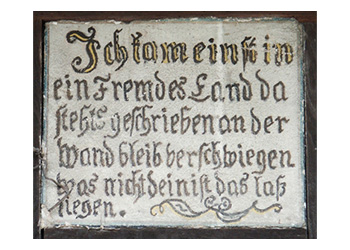 Ich kam einst in
ein Fremdes Land da
stehts geschrieben an der
Wand bleib verschwiegen
was nicht dein ist das laß
liegen.